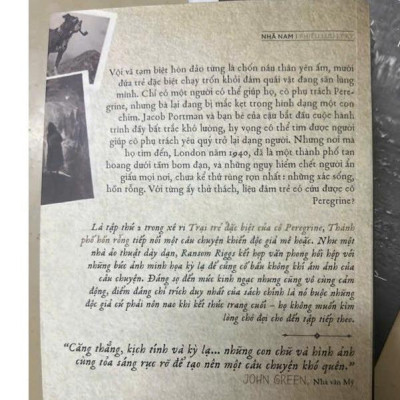 NHÃ NAM
Vội vã tạm biệt hòn đảo từng là chốn náu thân yên ấm, mười
đứa trẻ đặc biệt chạy trốn khỏi đám quái vật đang săn lùng
mình. Chỉ có một người có thể giúp họ, cô phụ trách Pere-
grine, nhưng bà lại đang bị mắc kẹt trong hình dạng một con
chim. Jacob Portman và bạn bè của cậu bắt đầu cuộc hành
trình đầy bất trắc khó lường, hy vọng có thể tìm được người
giúp cô phụ trách yêu quý trở lại dạng người. Nhưng nơi mà
họ tìm đến, London năm 1940, đã là một thành phố tan
hoang dưới tầm bom đạn, và những nguy hiểm chết người ẩn
giấu mọi nơi, chưa kể thứ rùng rợn nhất: những xác sống,
hồn rỗng. Với từng ấy thử thách, liệu đám trẻ có cứu được cô
Peregrine?
Là tập thứ 2 trong xê ri Trại trẻ đặc biệt của cô Peregrine, Thành
phố hồn rỗng tiếp nối một câu chuyện khiến độc giả mê hoặc. Như một
nhà ảo thuật dày dạn, Ransom Riggs kết hợp văn phong hồi hộp với
những bức ảnh minh họa kỳ lạ để củng cố bầu không khí ám ảnh của
câu chuyện. Đáng sợ đến mức kinh ngạc nhưng cũng vô cùng cảm
động, điểm đáng chỉ trích duy nhất của sách chính là nó buộc những
độc giả cú phải nôn nao khi kết thúc trang cuối – họ không muốn kìm
lòng chờ đợi cho đến tập tiếp theo.
“Căng thẳng, kịch tính và kỳ lạ... những con chữ và hình ảnh
cùng tỏa sáng rực rỡ để tạo nên một câu chuyện khó quên.”
JOHN GREEN, Nhà văn Mỹ